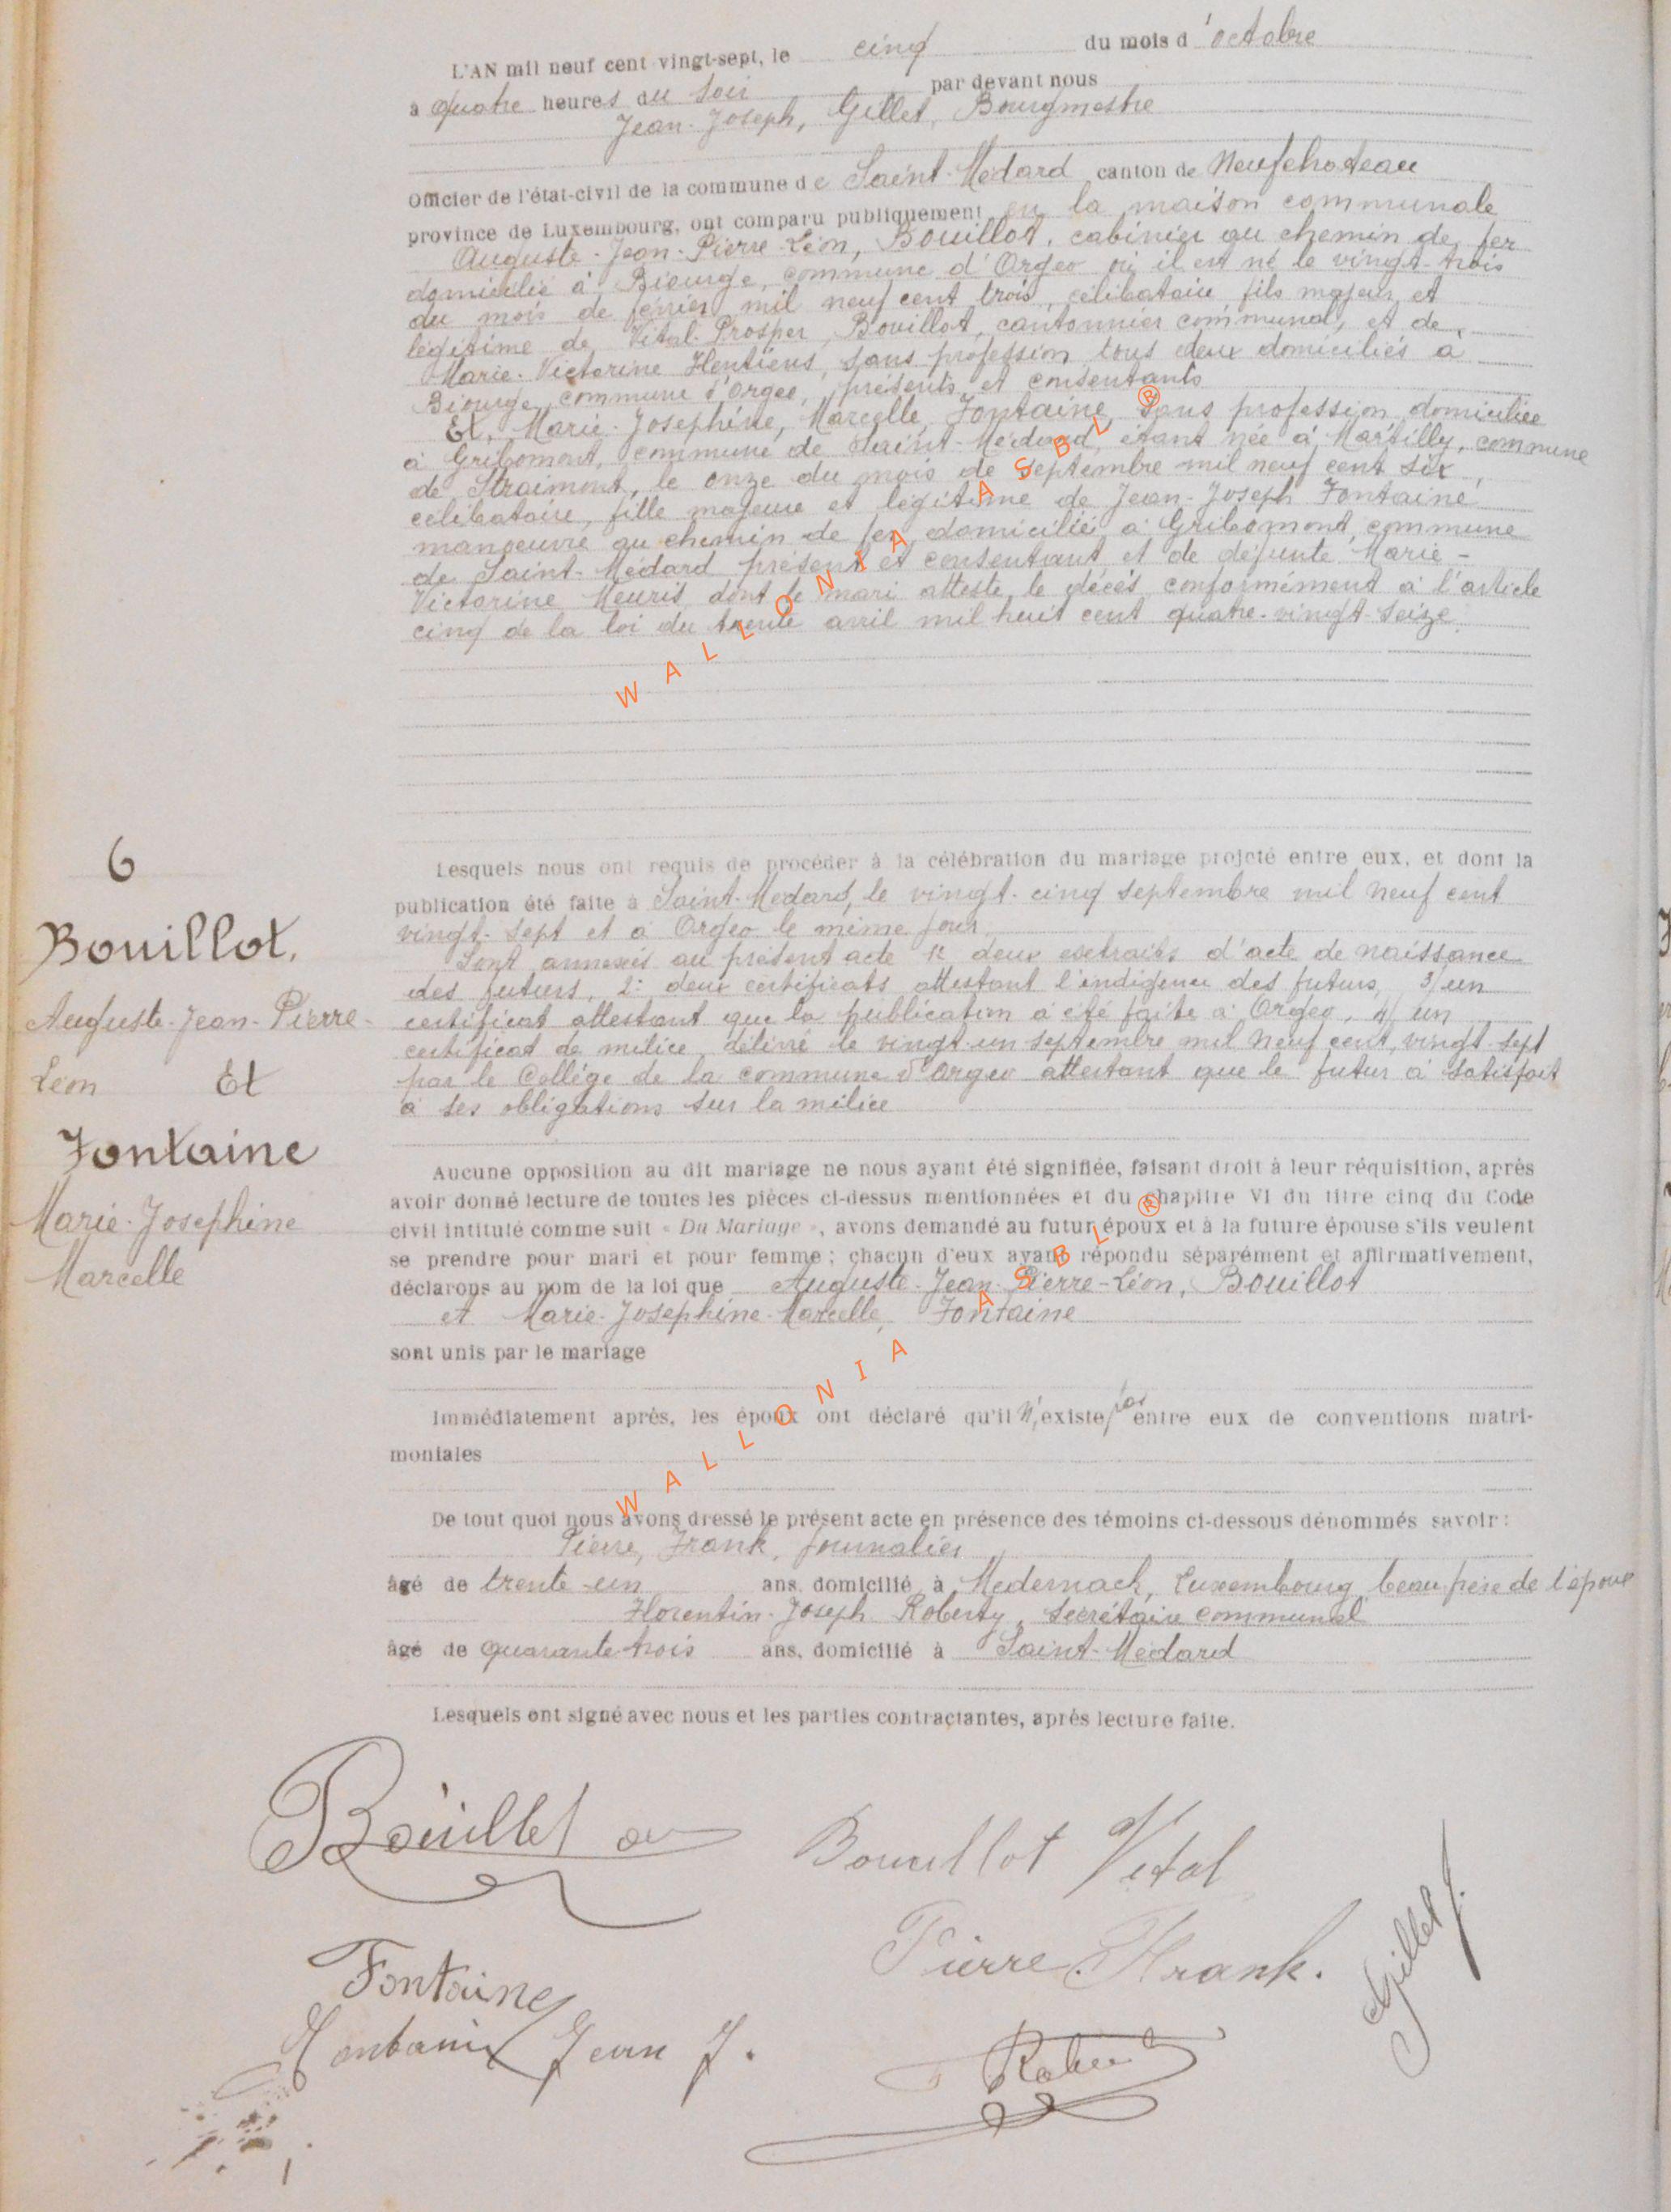 L'AN mil neuf cent vingt-sept, le cinq du mois d'octobre
à quatre heures du soir par devant nous
Jean-Joseph, Gillet, Bourgmestre
Officier de l'état-civil de la commune de Saint-Médard canton de Neufchateau
province de Luxembourg, ont comparu publiquement en la maison communale
Auguste-Jean-Pierre-Léon, Bouillot, cabinier au chemin de fer
domicilié à Biourge, commune d'Orgeo où il est né le vingt-trois
du mois de février mil neuf cent trois, célibataire fils majeur et
légitime de Vital-Prosper, Bouillot, cantonnier communal, et de
Marie-Victorine Hentiens, sans profession tous deux domiciliés à
Biourge commune d'Orgeo, présents et consentants
Et, Marie-Josephine, Marcelle, Fontaine, sans profession domiciliée
à Gribomont, commune de Saint-Médard, étant née à Martilly, commune
de Straimont, le onze du mois de septembre mil neuf cent six,
célibataire, fille majeure et légitime de Jean-Joseph Fontaine
manoeuvre au chemin de fer domicilié à Gribomont, commune
de Saint-Médard présent et consentant et de défunte Marie-
Victorine Meuris dont le mari atteste le décès conformément à l'article
cinq de la loi du trente avril mil huit cent quatre-vingt-seize
WALLONIA ASBL ®
Lesquels nous ont requis de procéder à la célébration du mariage projeté entre eux, et dont la
publication été faite à Saint-Médard, le vingt-cinq septembre mil neuf cent
vingt-sept et à Orgeo le même jour
Sont annexés au présent acte 1: deux extraits d'acte de naissance
des futurs, 2: deux certificats attestant l'indigence des futurs, 3/ un
certificat attestant que la publication a été faite à Orgeo, 4/ un
certificat de milice délivré le vingt-un septembre mil neuf cent, vingt-sept
par le Collége de la commune d'Orgeo attestant que le futur a satisfait
à ses obligations sur la milice
6
Bouillot,
Auguste-Jean-Pierre-
Léon Et
Fontaine
Marie-Josephine
Marcelle
Aucune opposition au dit mariage ne nous ayant été signifiée, faisant droit à leur réquisition, après
avoir donné lecture de toutes les pièces ci-dessus mentionnées et du chapitre VI du titre cinq du Code
civil intitulé comme suit « Du Mariage », avons demandé au futur époux et à la future épouse s'ils veulent
se prendre pour mari et pour femme ; chacun d'eux ayant répondu séparément et affirmativement,
déclarons au nom de la loi que Auguste-Jean-Pierre-Léon, Bouillot
et Marie-Josephine-Marcelle, Fontaine
sont unis par le mariage
WALLONIA ASBL ®
Immédiatement après, les époux ont déclaré qu'il n'existe pas entre eux de conventions matri-
moniales
De tout quoi nous avons dressé le présent acte en présence des témoins ci-dessous dénommés savoir :
Pierre, Frank, journalier
âgé de trente-un ans, domicilié à Medernach, Luxembourg, beau-frère de l'époux
Florentin-Joseph Roberty, secrétaire communal
âgé de quarante-trois ans, domicilié à Saint-Médard
Lesquels ont signé avec nous et les parties contractantes, après lecture faite.
Bouillot
Bouillot Vital
Pierre Frank.
Gillet J.
Fontaine
Fontaine Jean J.